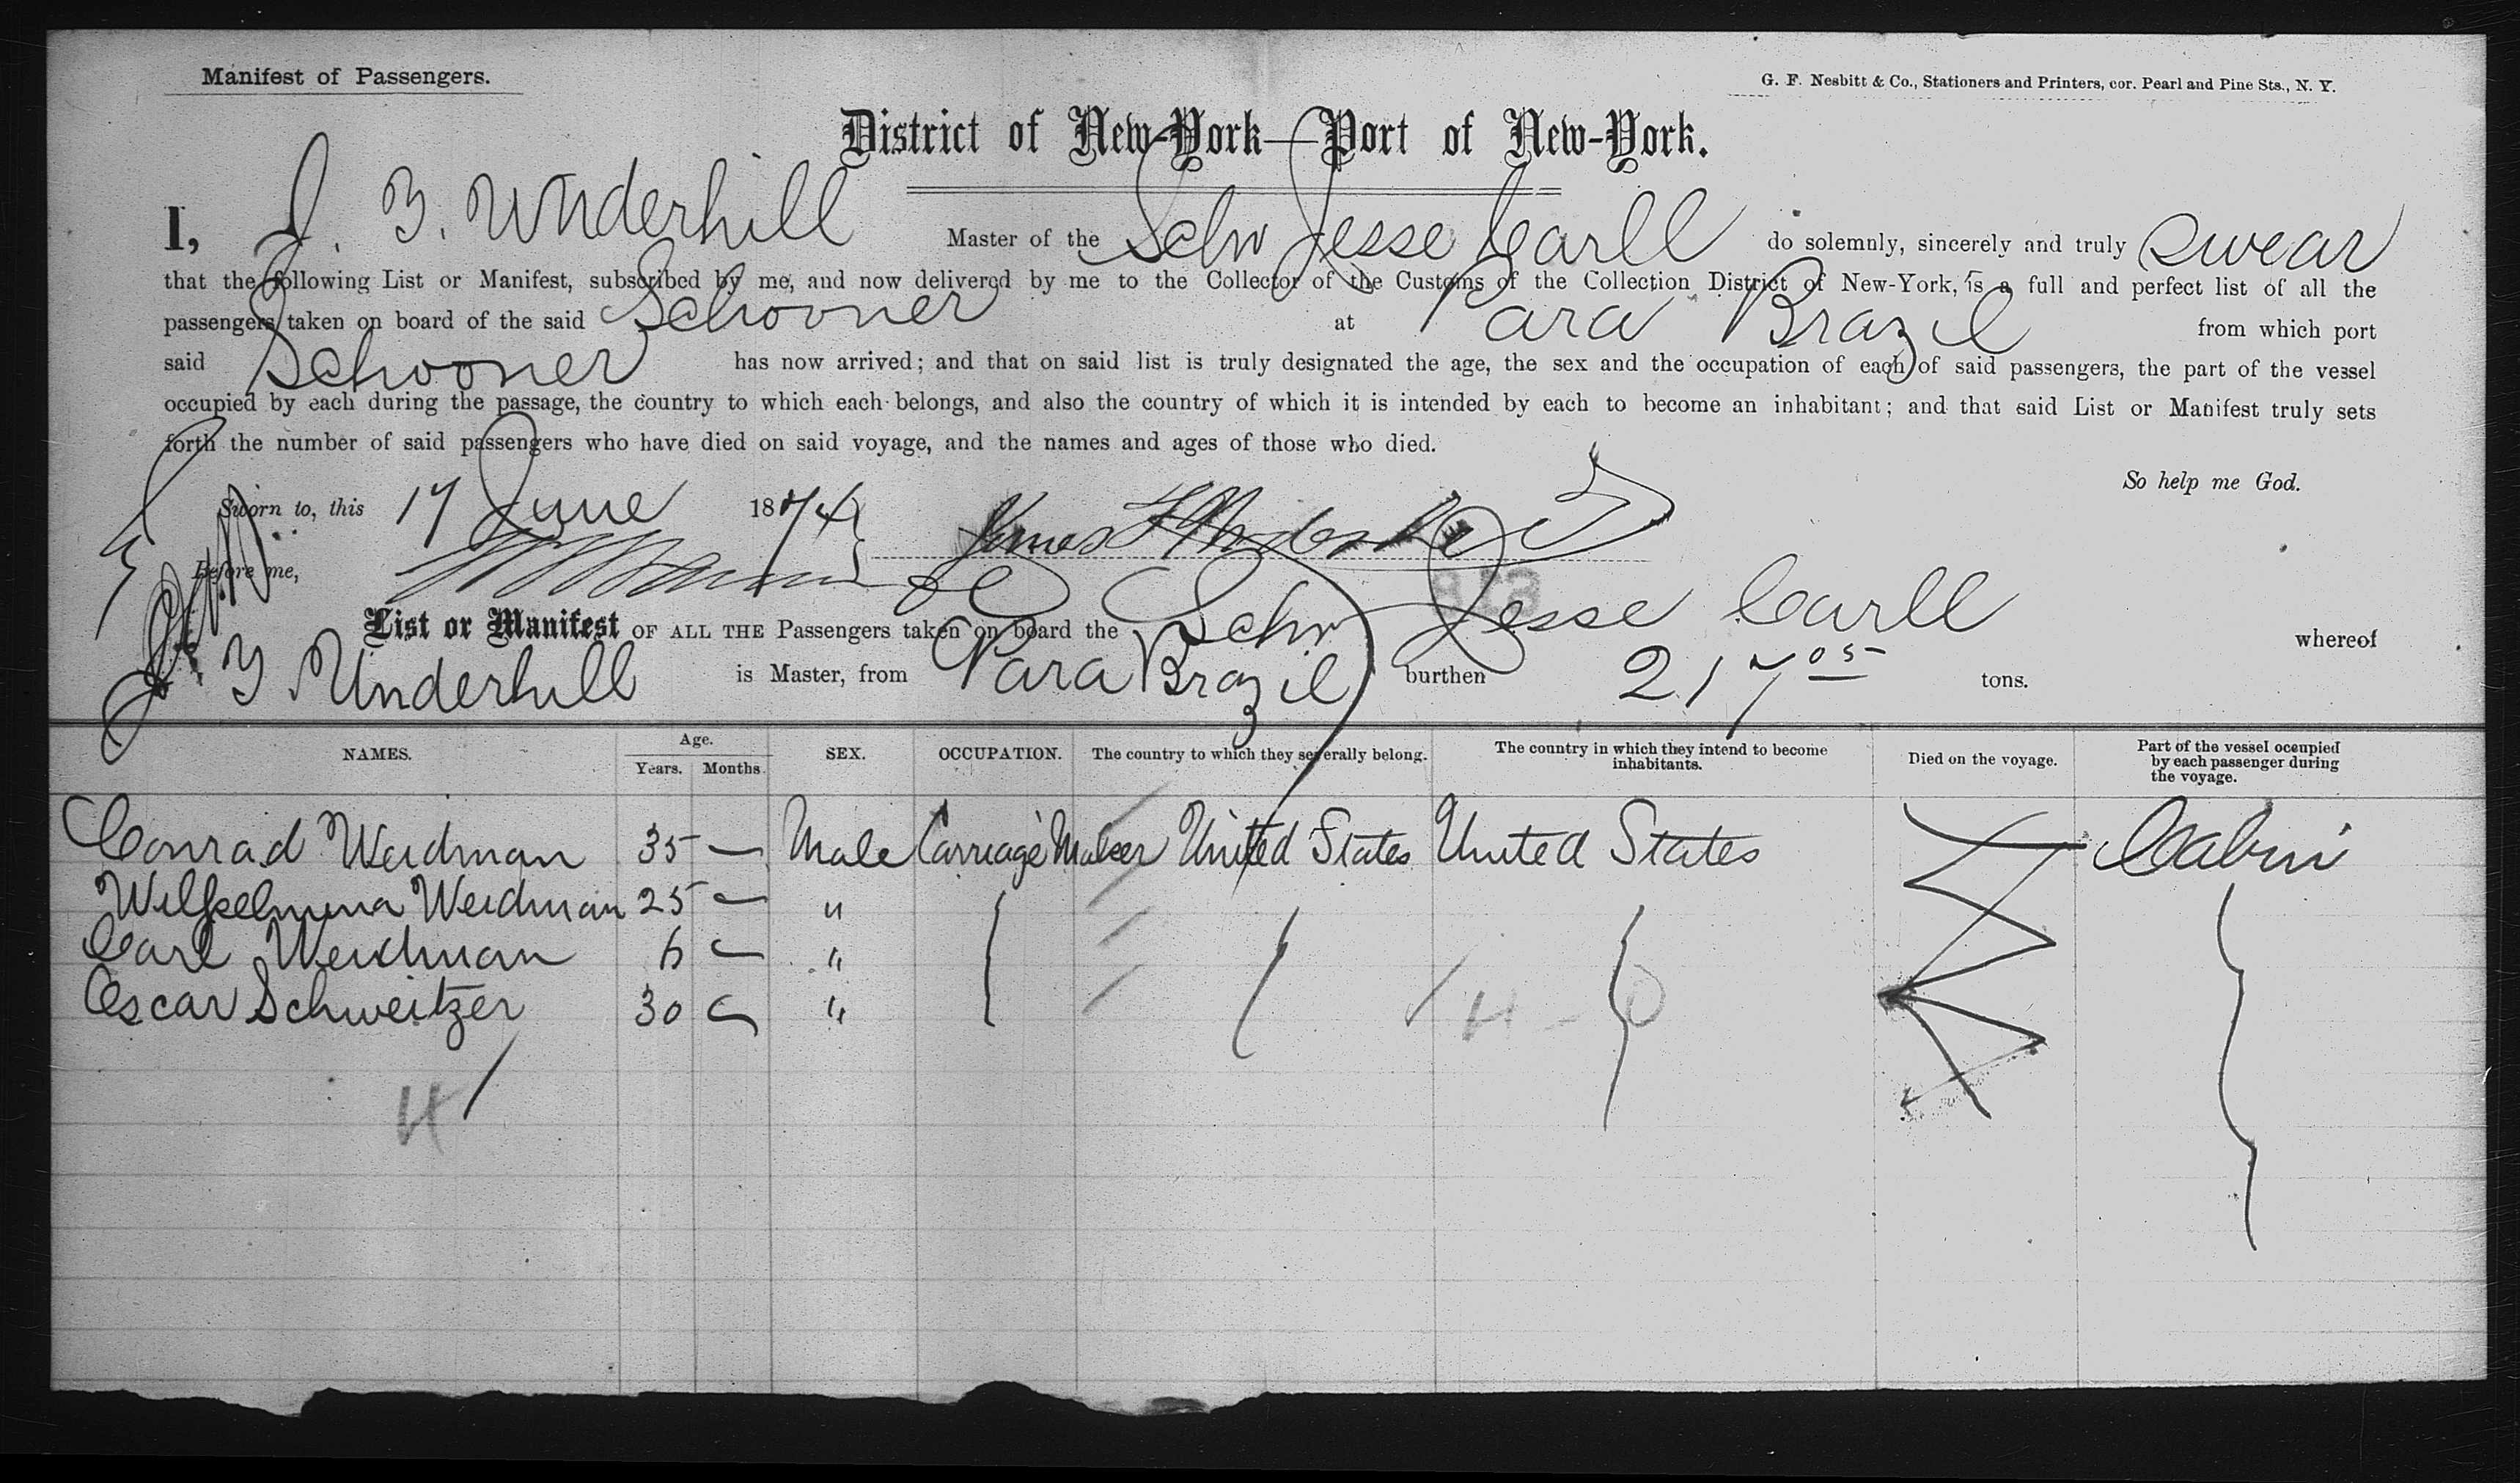 Manifest of Passengers.
G. F. Nesbitt & Co., Stationers and Printers, cor. Pearl and Pine Sts., N. Y.
District of New-York—Port of New-York.
I, J. Y. Underhill Master of the Schr Jesse Carll do solemnly, sincerely and truly swear
that the following List or Manifest, subscribed by me, and now delivered by me to the Collector of the Customs of the Collection District of New-York, is a full and perfect list of all the
passengers taken on board of the said Schooner at Para Brazil from which port
said Schooner has now arrived; and that on said list is truly designated the age, the sex and the occupation of each of said passengers, the part of the vessel
occupied by each during the passage, the country to which each belongs, and also the country of which it is intended by each to become an inhabitant; and that said List or Manifest truly sets
forth the number of said passengers who have died on said voyage, and the names and ages of those who died.
So help me God.
Sworn to, this 17 June 1874
Before me,
List or Manifest OF ALL THE Passengers taken on board the Schr Jesse Carll whereof
J. Y Underhill is Master, from Para Brazil burthen 217 05 tons.
NAMES. Age. Years. Months. SEX. OCCUPATION. The country to which they severally belong. The country in which they intend to become inhabitants. Died on the voyage. Part of the vessel occupied by each passenger during the voyage.
Conrad Weidman 35 — Male Carriage Maker United States United States Cabin
Wilhelmina Weidman 25 — "
Carl Weidman 6 — "
Oscar Schweitzer 30 — "
4 - 0
4